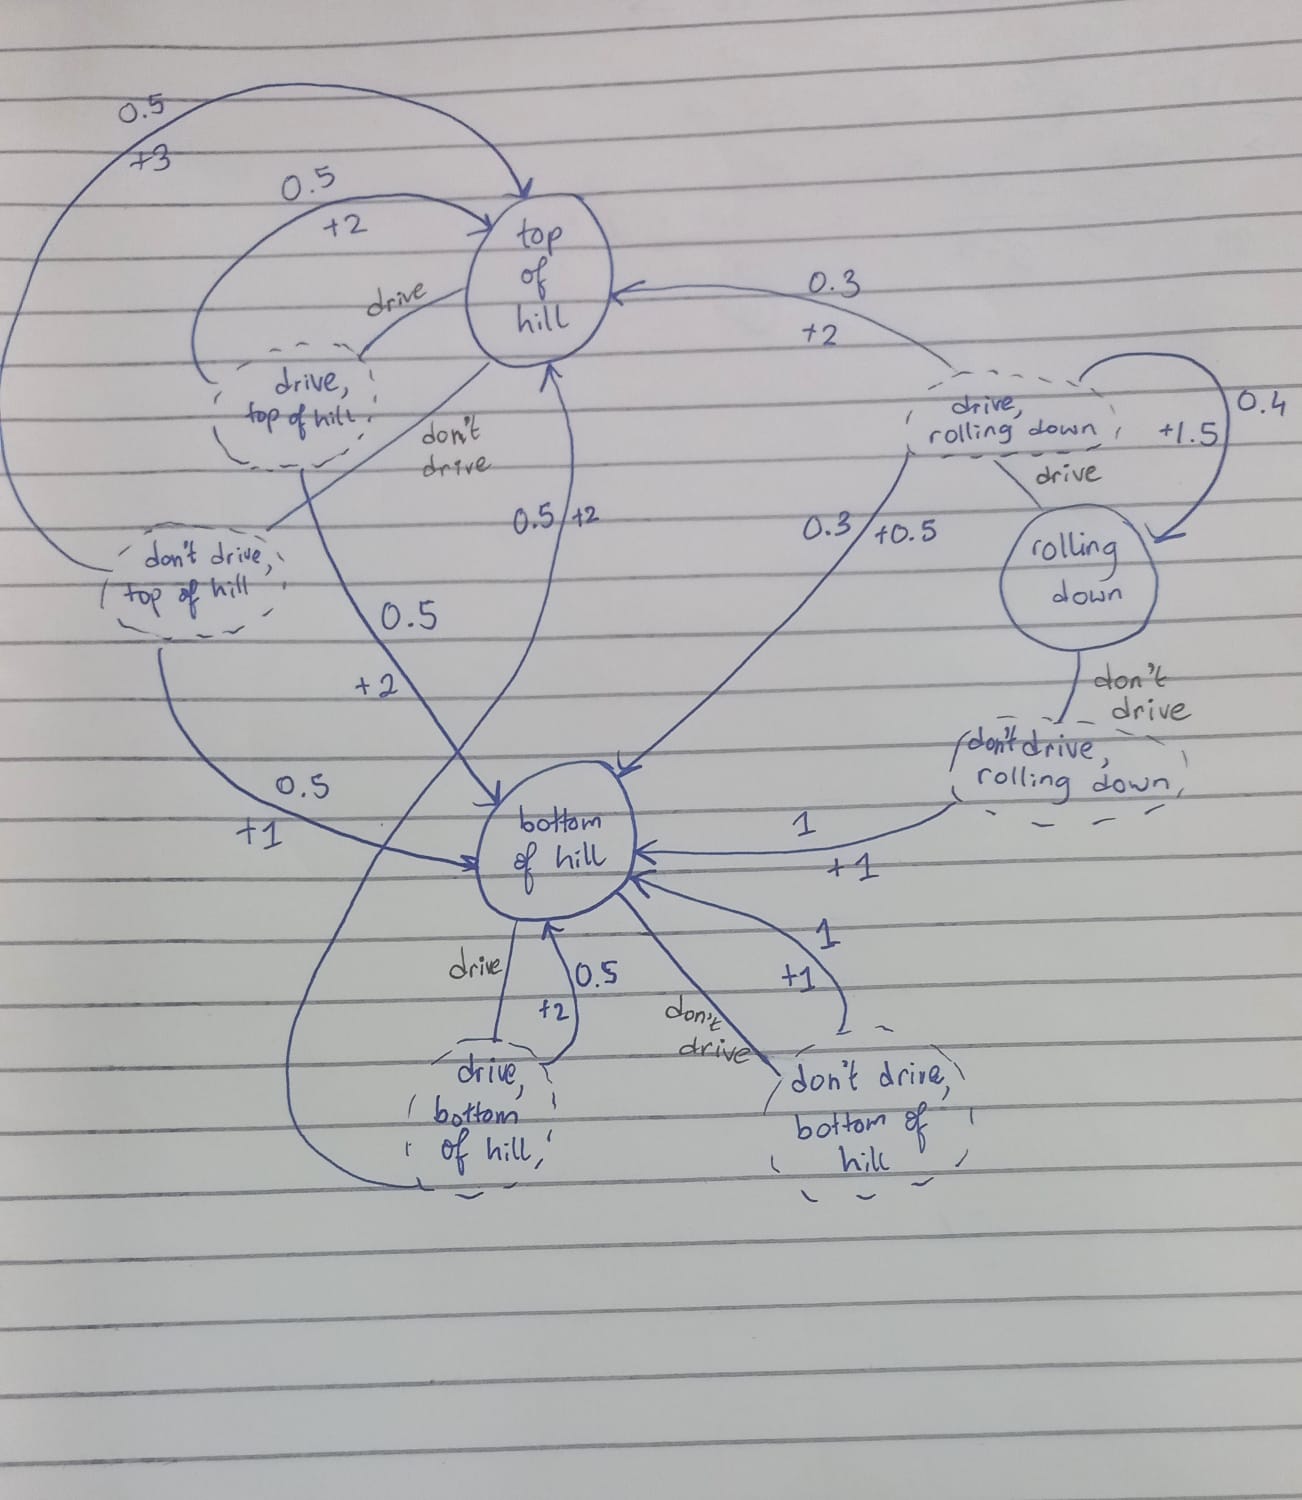 0.5
+3
0.5
+2
top
of
hill
drive
0.3
+2
drive,
top of hill
don't
drive
drive,
rolling down
0.4
+1.5
drive
0.5
+2
0.3
+0.5
rolling
down
don't drive,
top of hill
0.5
+2
don't
drive
don't drive,
rolling down
0.5
+1
bottom
of hill
1
+1
1
+1
drive
0.5
+2
don't
drive
drive,
bottom
of hill
don't drive,
bottom of
hill